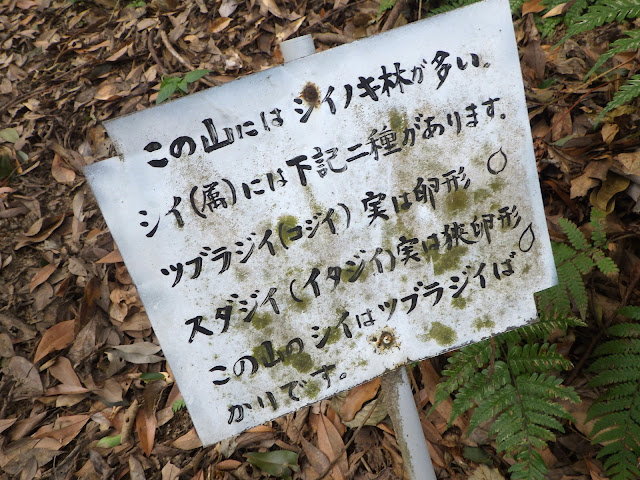 この山にはシイノキ林が多い。
シイ(属)には下記二種があります。
ツブラジイ(コジイ)実は卵形
スダジイ(イタジイ)実は狭卵形
この山のシイはツブラジイば
かりです。